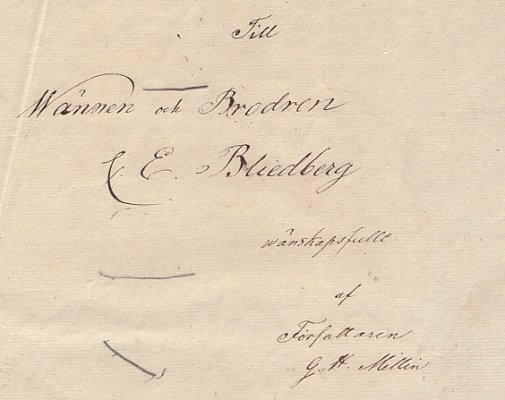 Till
Wännen och Brodren
E. Bliedberg
wänskapsfullt
af
Författaren
G. H. Mellin